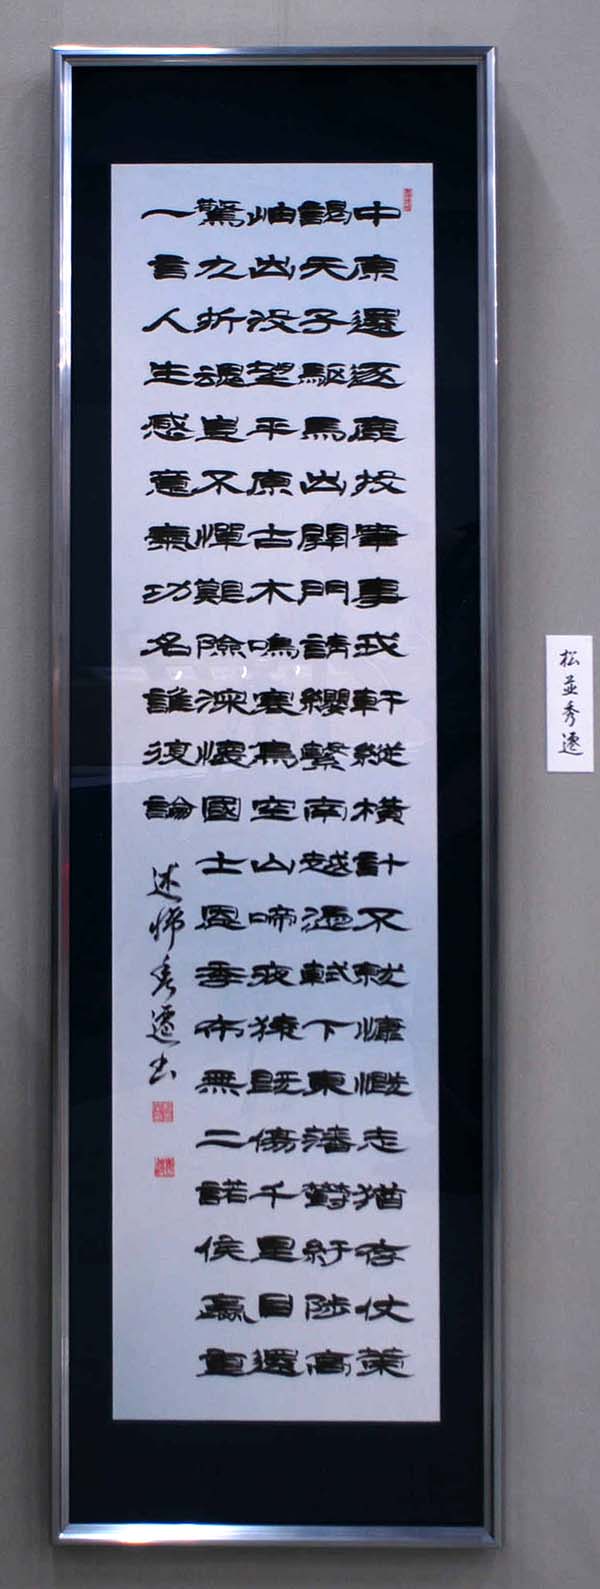 中原還逐鹿投筆事戎軒縱橫計不就慷慨志猶存仗策
謁天子驅馬出關門請纓繫南越憑軾下東藩鬱紆陟高
岫出没望平原古木鳴寒鳥空山啼夜猿既傷千里目還
驚九折魂豈不憚艱險深懷國士恩季布無二諾侯嬴重
一言人生感意氣功名誰復論
述懐秀遷书
松並秀遷